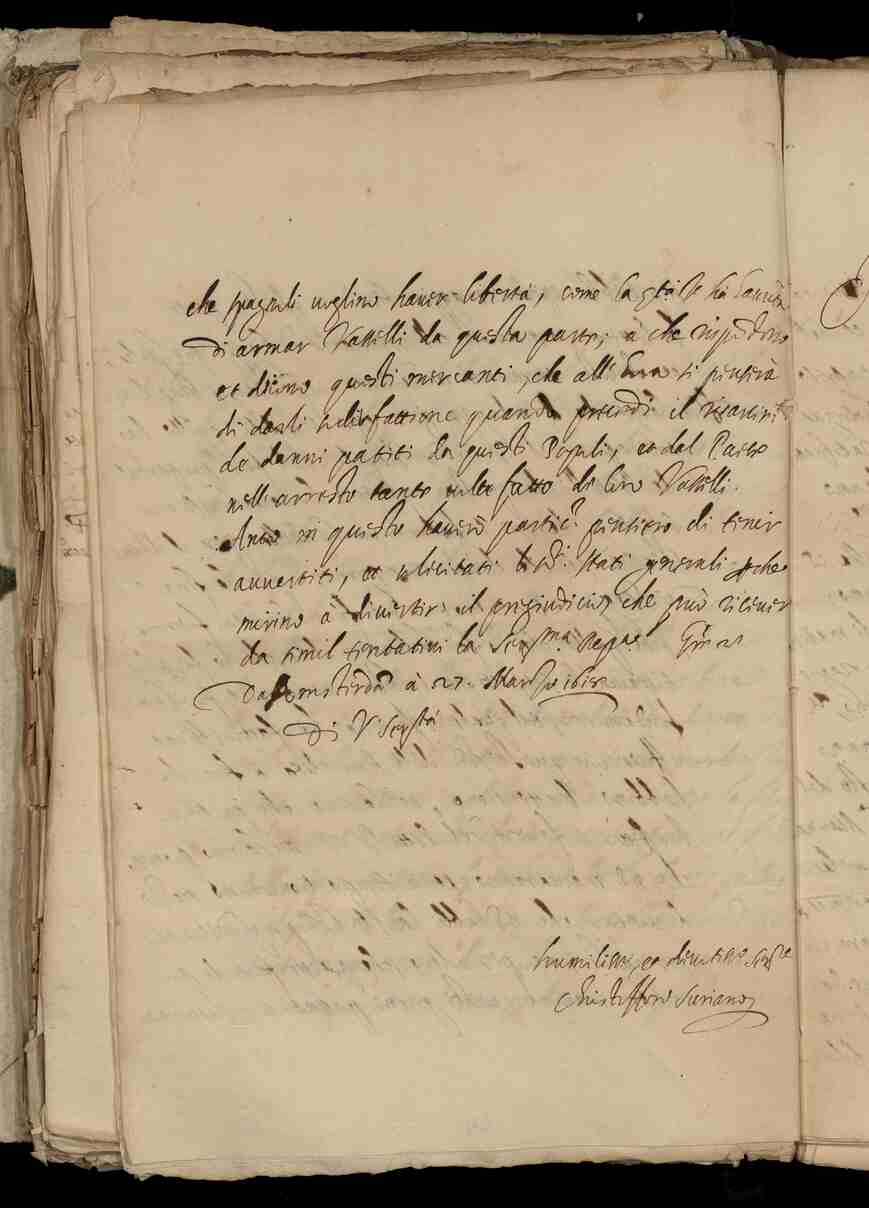 che spagnoli voglino haver libertà, come la S.tà V.ra ha havuta
di armar Vasselli da questa parte; à che rispondono
et dicono questi mercanti, che all' hora si penserà
di darli sodisfattione quando precedi il risarcim.to
de danni patiti da questi Popoli, et dal Paese
nell'arresto tante volte fatto di loro Vasselli.
Anco in questo haverò partic.r pensiero di tener
avvertiti, et solicitati li SS.ri Stati generali perche
mirino à divertir il pregiudicio, che può ricever
da simil tentativi la Ser.ma Rep.ca Gratie etc.
Da Amsterdã à 27. Marzo 1618
Di V. Ser.tà
humiliss.o, et devotiss.o ser.re
Christofforo Suriano